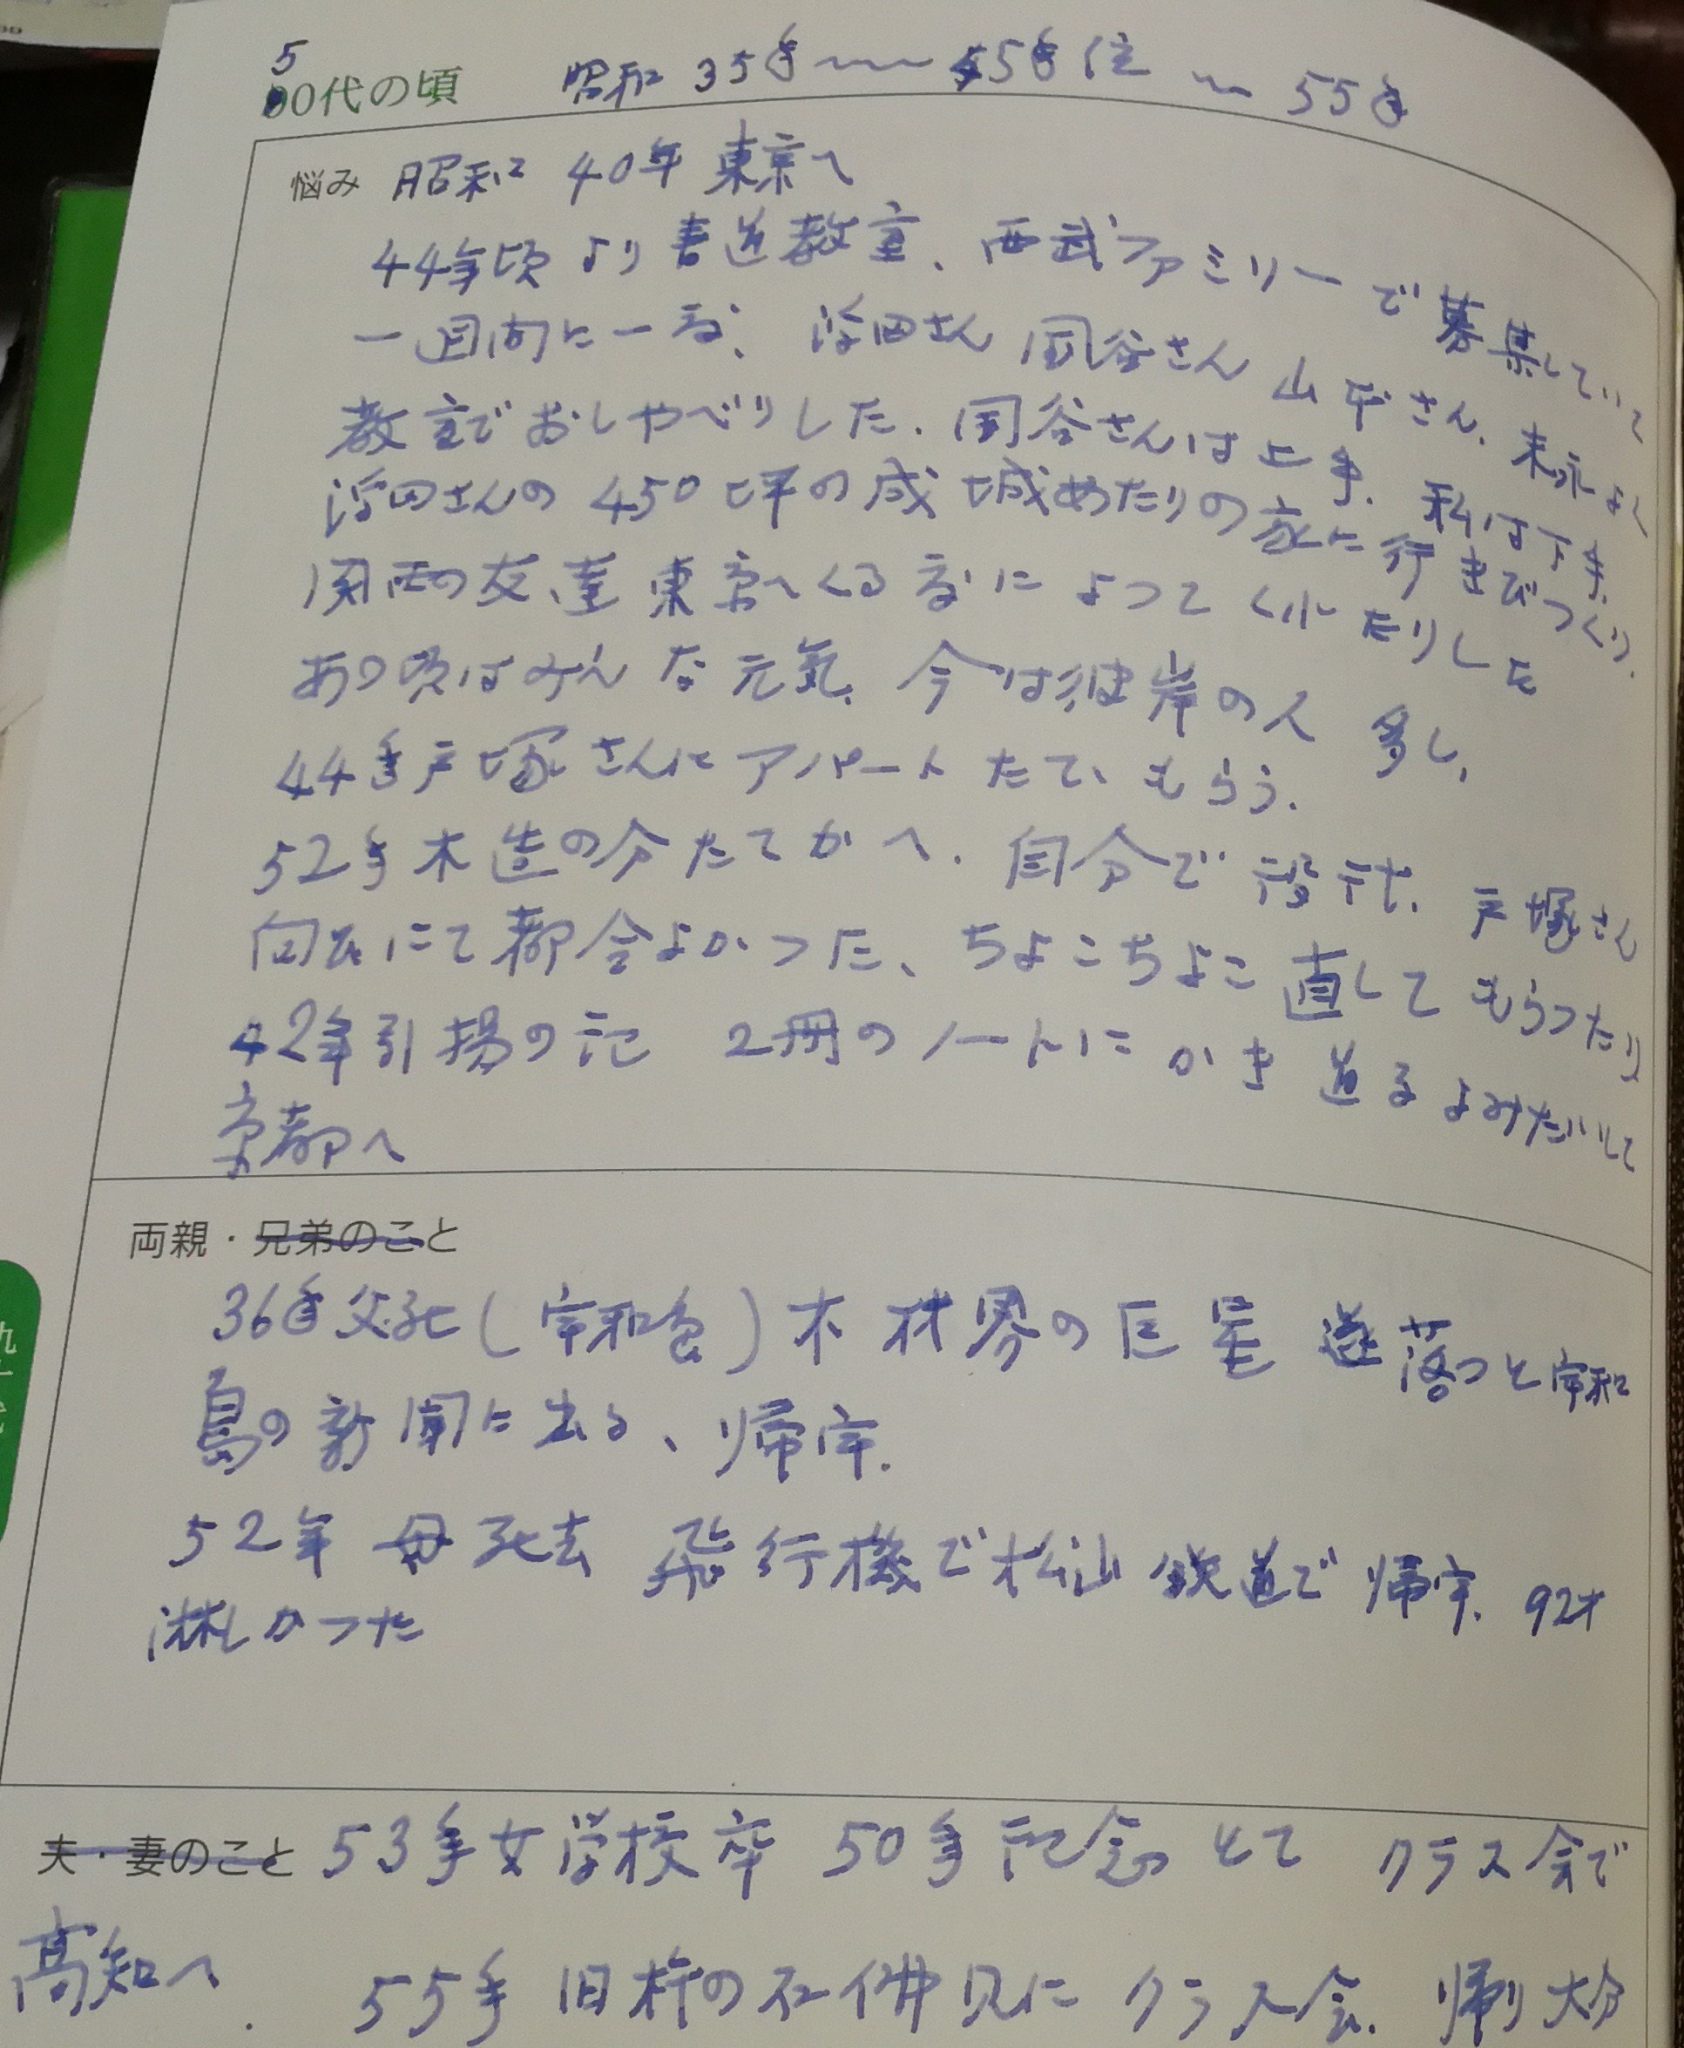 50代の頃 昭和35年〜45年位〜55年
悩み 昭和40年東京へ
44年頃より書道教室、西武ファミリーで募集していて
一週間に一度、浮田さん 国谷さん 山本さん、末永よく
教室でおしゃべりした。国谷さんは上手、私は下手、
浮田さんの450坪の成城あたりの家に行きびっくり。
関西の友達東京へくる度によってくれたりした
あの頃はみんな元気、今は彼岸の人 多し、
44年戸塚さんにアパートたててもらう。
52年木造の分たてかへ。自分で設計、戸塚さん
向にて都合よかった、ちょこちょこ直してもらったり
42年引揚の記 2冊のノートにかき 送るよみだして
京都へ
両親・兄弟のこと
36年父死(宇和島)木材界の巨星 遂落つと宇和
島の新聞に出る、帰宇.
52年 母死去 飛行機で松山 鉄道で帰宇. 92才
淋しかった
夫・妻のこと 53年女学校卒 50年記念とて クラス会で
高知へ. 55年 臼杵の石仏見に クラス会. 帰り大分